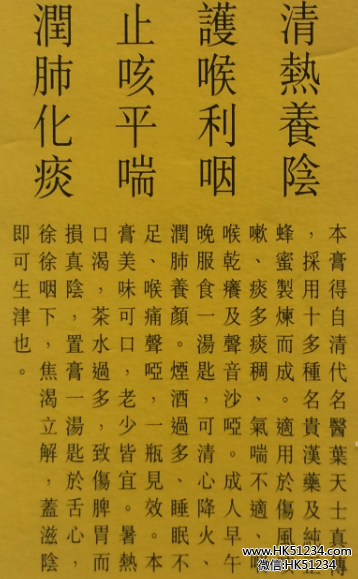 清熱養陰
護喉利咽
止咳平喘
潤肺化痰
本膏得自清代名醫葉天士真傳
，採用十多種名貴漢藥及純
蜂蜜製煉而成。適用於傷風
嗽、痰多痰稠、氣喘不適、咽
喉乾癢及聲音沙啞。成人早午
晚服食一湯匙，可清心降火、
潤肺養顏。煙酒過多、睡眠不
足、喉痛聲啞，一瓶見效。本
膏美味可口，老少皆宜。暑熱
口渴，茶水過多，致傷脾胃而
損真陰，置膏一湯匙於舌心，
徐徐咽下，焦渴立解，蓋滋陰
即可生津也。
www.HK51234.com
微信:HK51234.com